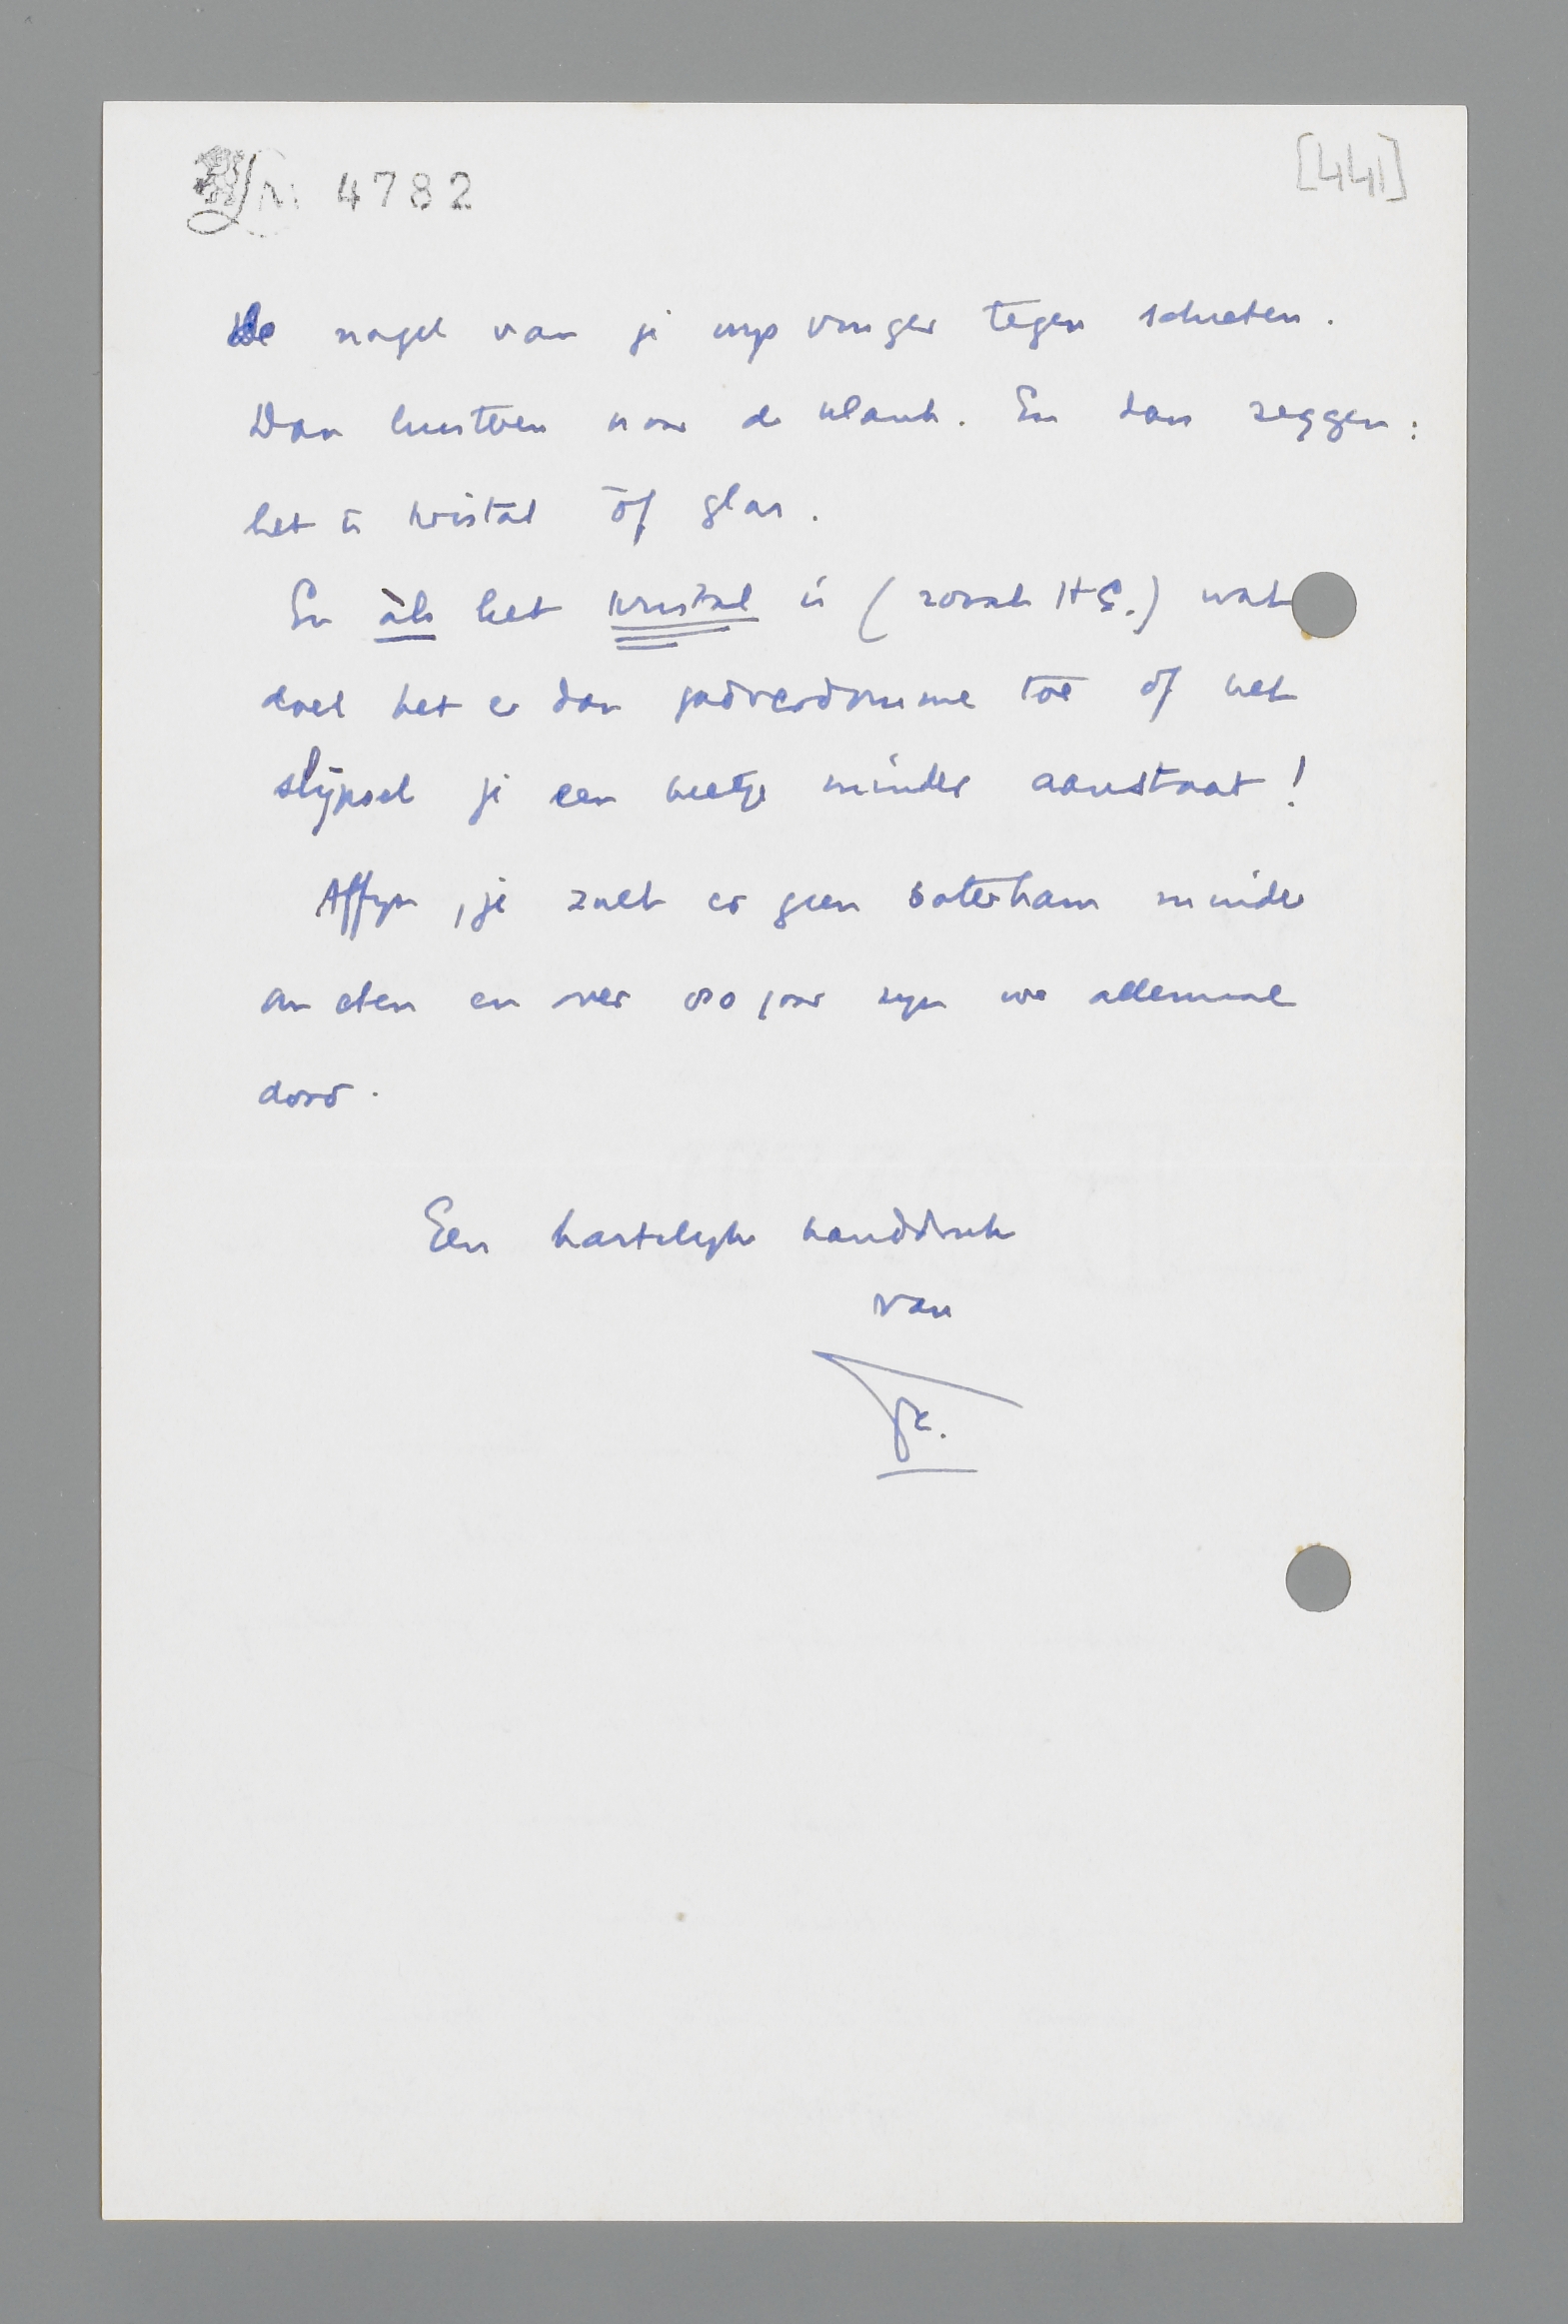 4782
[441]
de nagel van je wijsvinger tegen schieten.
Dan luisteren naar de klank. En dan zeggen:
het is kristal òf glas.
En àls het kristal is (zoals H.G.) wat
doet het er dan godverdomme toe of het
slijpsel je een beetje minder aanstaat!
Affijn, je zult er geen boterham minder
om eten en over 80 jaar zijn we allemaal
dood.
Een hartelijke handdruk
van